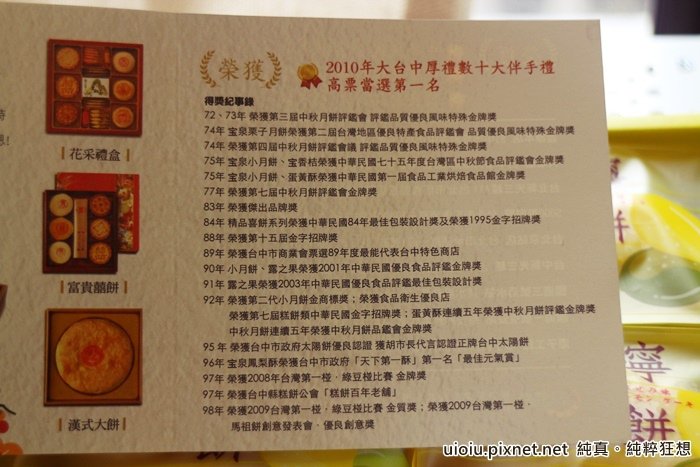 榮獲
2010年大台中厚禮數十大伴手禮
高票當選第一名
得獎紀事錄
72、73年 榮獲第三屆中秋月餅評鑑會 評鑑品質優良風味特殊金牌獎
74年 宝泉栗子月餅榮獲第二屆台灣地區優良特產食品評鑑會 品質優良風味特殊金牌獎
74年 榮獲第四屆中秋月餅評鑑會議 評鑑品質優良風味特殊金牌獎
75年 宝泉小月餅、宝香桔榮獲中華民國七十五年度台灣區中秋節食品評鑑會金牌獎
75年 宝泉小月餅、蛋黃酥榮獲中華民國第一屆食品工業烘焙食品館金牌獎
77年 榮獲第七屆中秋月餅評鑑會金牌獎
83年 榮獲傑出品牌獎
84年 精品喜餅系列榮獲中華民國84年最佳包裝設計獎及榮獲1995金字招牌獎
88年 榮獲第十五屆金字招牌獎
89年 榮獲台中市商業會票選89年度最能代表台中特色商店
90年 小月餅、露之果榮獲2001年中華民國優良食品評鑑金牌獎
91年 露之果榮獲2003年中華民國優良食品評鑑最佳包裝設計獎
92年 榮獲第二代小月餅金商標獎；榮獲食品衛生優良店
榮獲第七屆糕餅類中華民國金字招牌獎；蛋黃酥連續五年榮獲中秋月餅評鑑金牌獎
中秋月餅連續五年榮獲中秋月餅品鑑會金牌獎
95年 榮獲台中市政府太陽餅優良認證 獲胡市長代言認證正牌台中太陽餅
96年 宝泉鳳梨酥榮獲台中市政府「天下第一酥」第一名「最佳元氣賞」
97年 榮獲2008年台灣第一椪．綠豆椪比賽 金牌獎
97年 榮獲台中縣糕餅公會「糕餅百年老舖」
98年 榮獲2009台灣第一椪．綠豆椪比賽 金質獎；榮獲2009台灣第一椪．
馬祖餅創意發表會．優良創意獎
花采禮盒
富貴囍餅
漢式大餅
餅
寧
餅
uioiu.pixnet.net 純真。純粹狂想